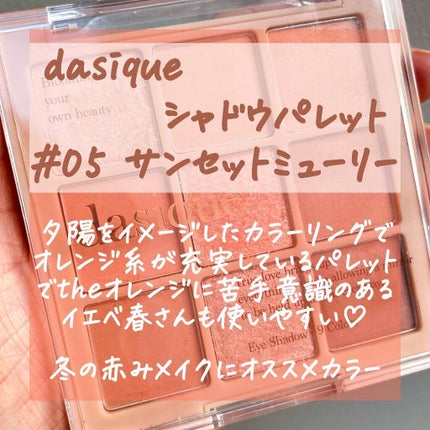 dasique
シャドウパレット
#05 サンセットミューリー
夕陽をイメージしたカラーリングで
オレンジ系が充実しているパレット
でtheオレンジに苦手意識のある
イエベ春さんも使いやすい♡
冬の赤みメイクにオススメカラー
your
own beauty
dasique
Eye Shadow